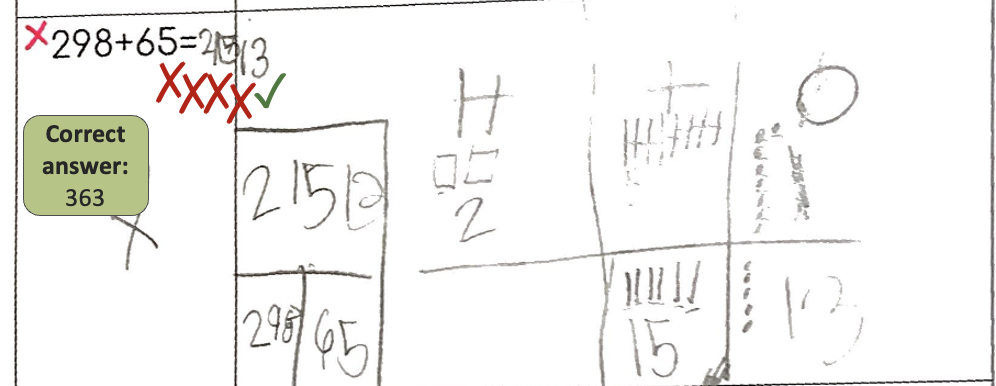 298+65=21513
Correct
answer:
363
H T O
2 15 13
2
298 65
15 13